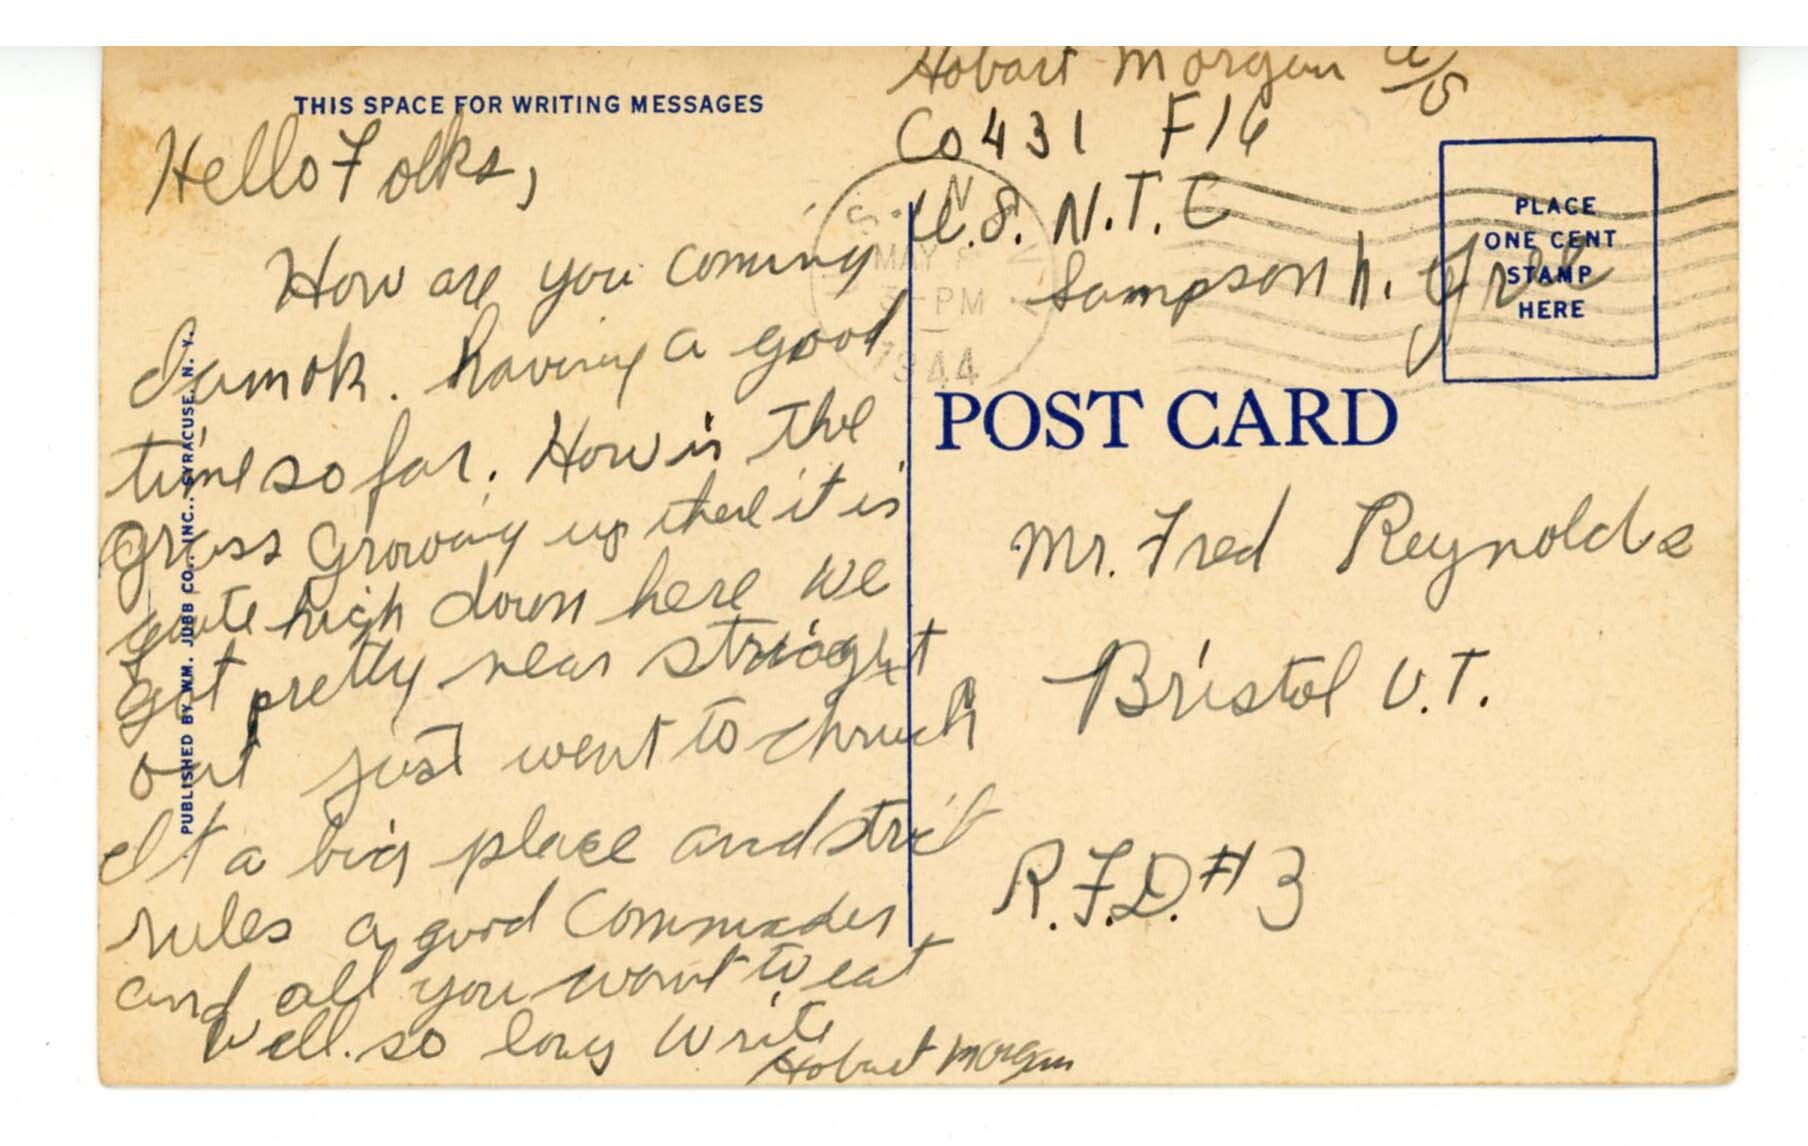 THIS SPACE FOR WRITING MESSAGES
Hello Folks,
How are you coming
I am ok. having a good
time so far. How is the
grass growing up there it is
quite high down here we
got pretty near straight
out just went to chruch
It a big place and strict
rules a good Commader
and all you want to eat
Well. so long write
Hobart Morgan
PUBLISHED BY WM. JUBB CO., INC., SYRACUSE, N. Y.
Hobart Morgan A/S
Co 431 F16
U.S. N.T.C
Sampson N. Y
Free
PLACE
ONE CENT
STAMP
HERE
MAY
3 - PM
1944
POST CARD
Mr. Fred Reynolds
Bristol V.T.
R.F.D. #3